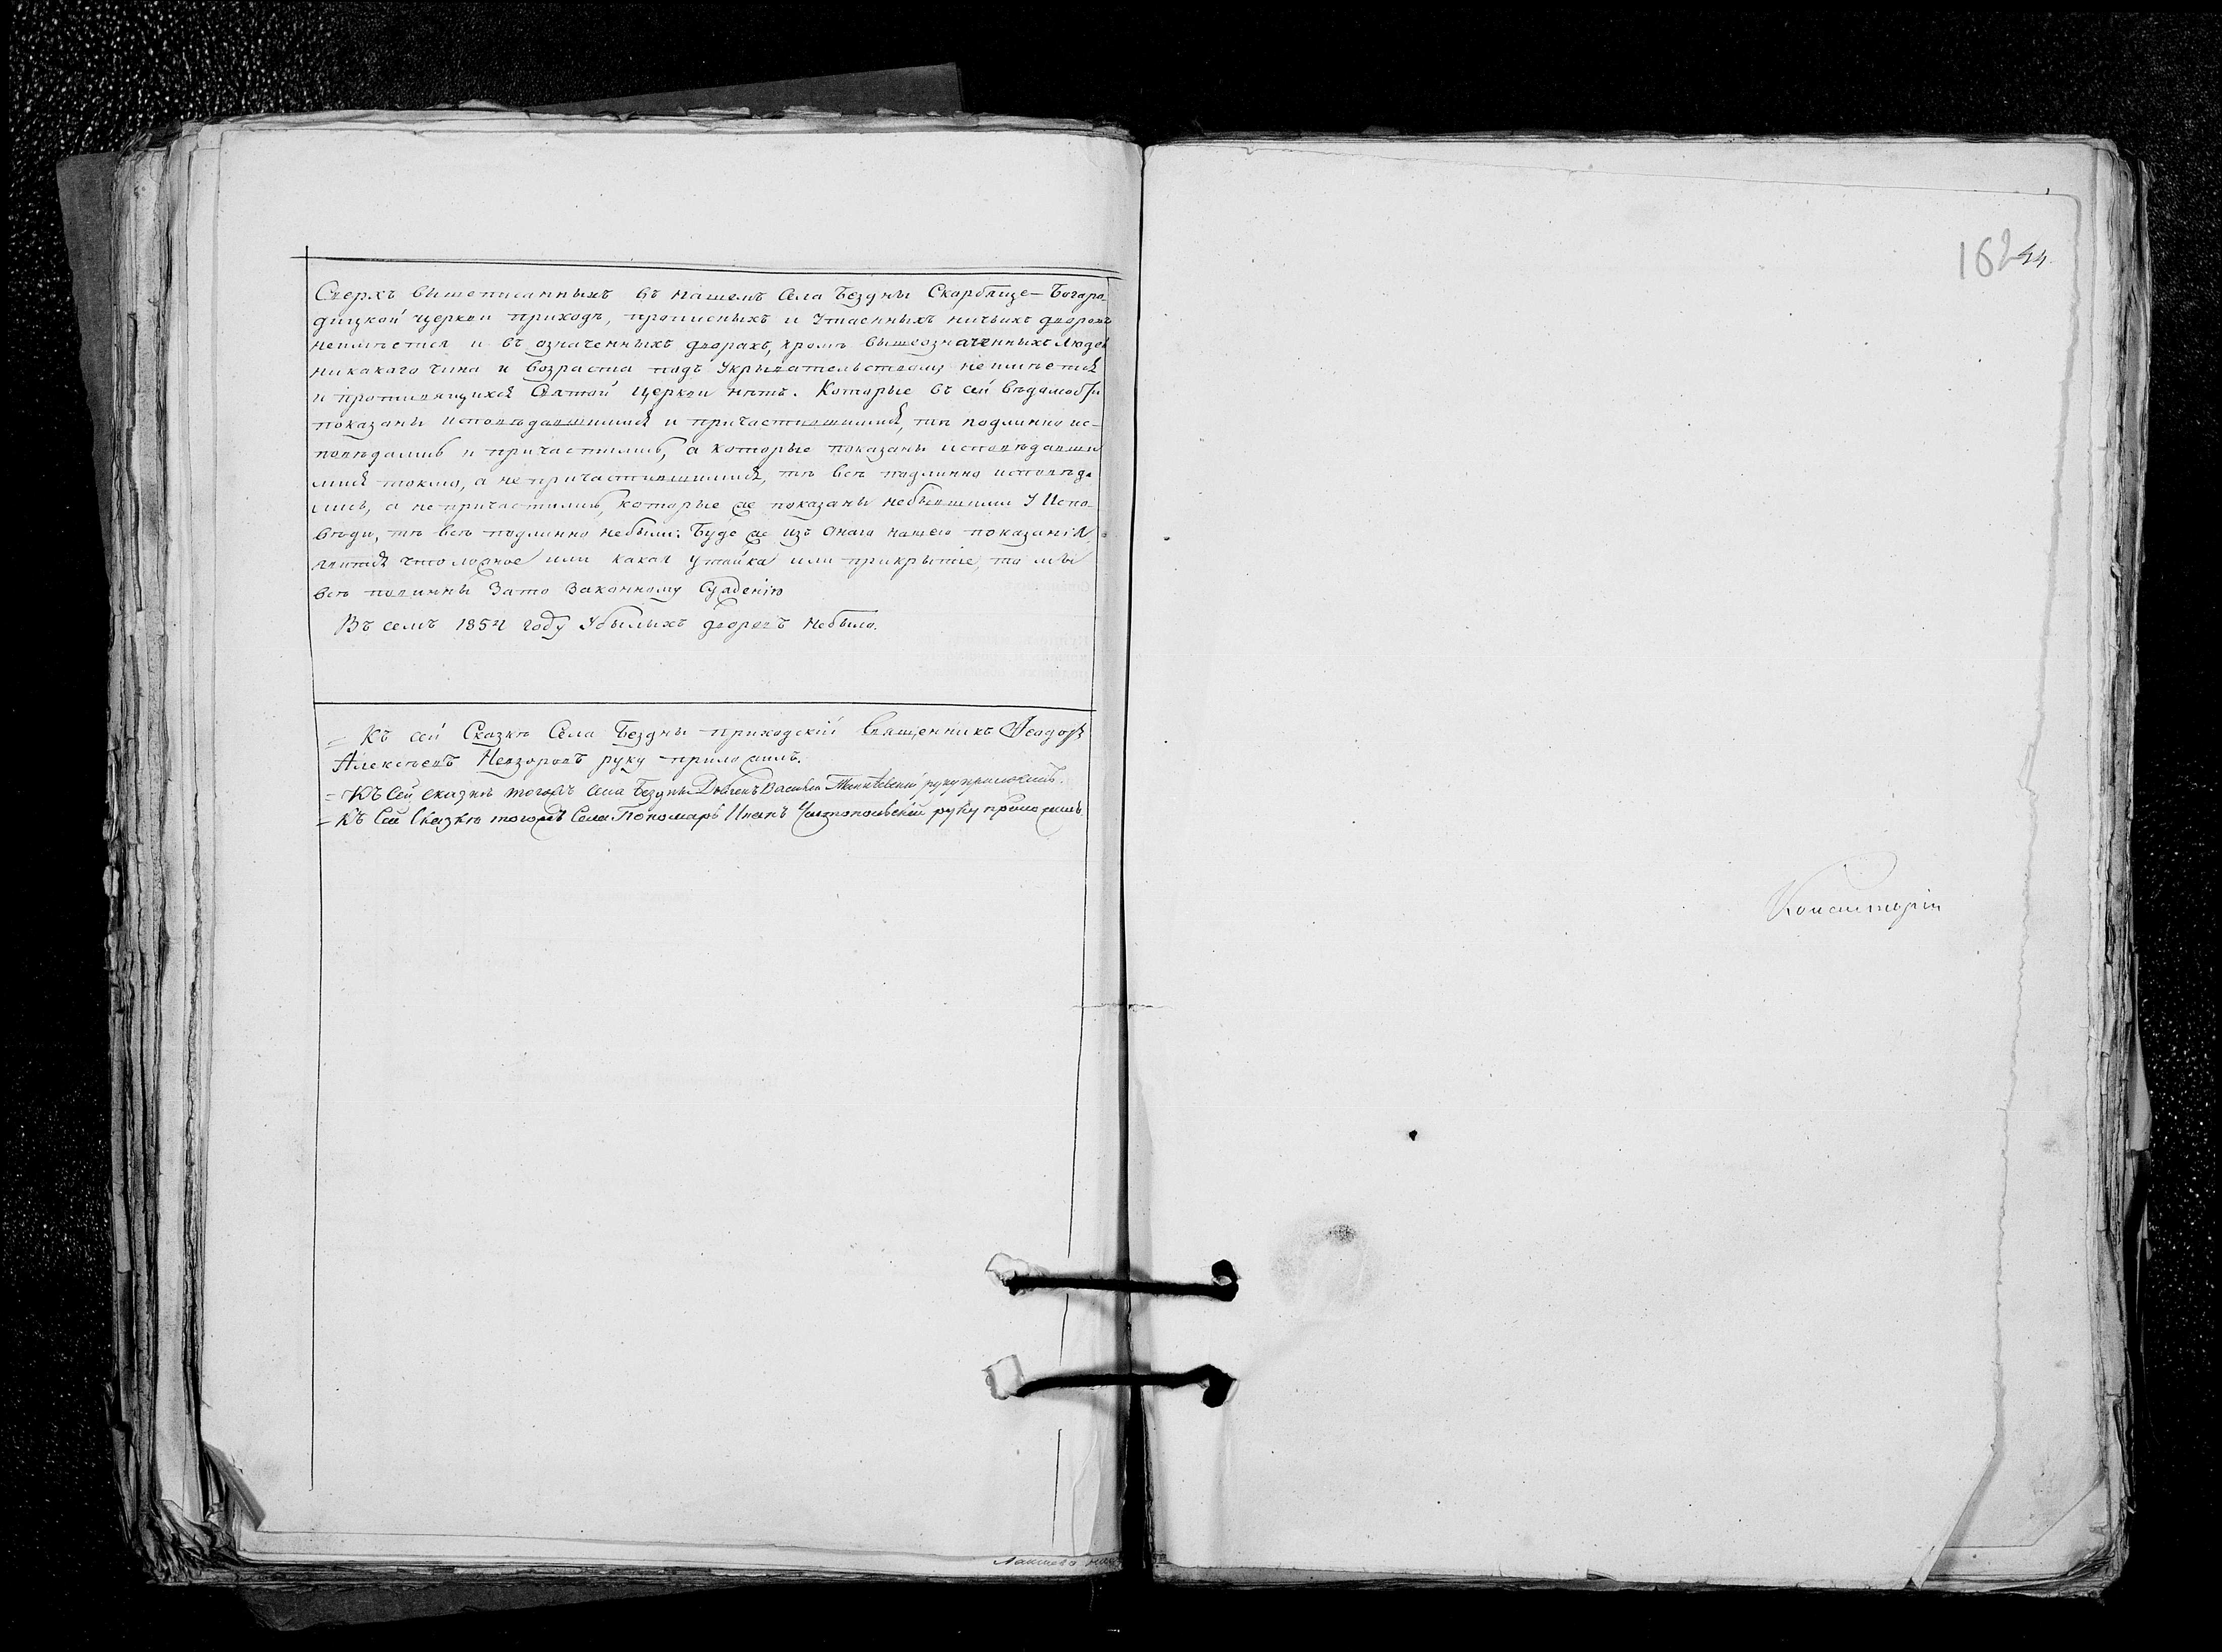 Сверхъ вышеписанныхъ въ нашемъ Села Бездны Скорбяще-Богоро-
дицкой церкви приходѣ, прописныхъ и утаенныхъ ничьихъ дворовъ
неимѣется и въ означенныхъ дворахъ, кромѣ вышеозначенныхъ людей
никакого чина и возраста подъ укрывательствомъ неимѣется
и противящихся Святой Церкви нѣтъ. Которые въ сей вѣдомости
показаны исповѣдавшимися и причастившимися, тѣ подлинно ис-
повѣдались и причастились, а которые показаны исповѣдавши
мися токмо, а не причастившимися, тѣ всѣ подлинно исповѣда
лись, а не причастились, которые же показаны небывшими у Испо-
вѣди, тѣ всѣ подлинно небыли: Буде же изъ онаго нашего показанія
явится что ложное или какая утайка или прикрытіе, то мы
всѣ повинны зато законному сужденію
Въ семъ 1854 году убылыхъ дворовъ небыло.
= Къ сей Сказкѣ Села Бездны приходскій Священникъ Ѳеодоръ
Алексѣевъ Невзоровъ руку приложилъ.
= Къ Сей сказкѣ тогожъ села Бездны Дьячекъ Василій руку приложилъ.
= Къ Сей Сказкѣ тогожъ Села Пономарь Иванъ Чистопольскій руку приложилъ.
162 44.
Консисторіи